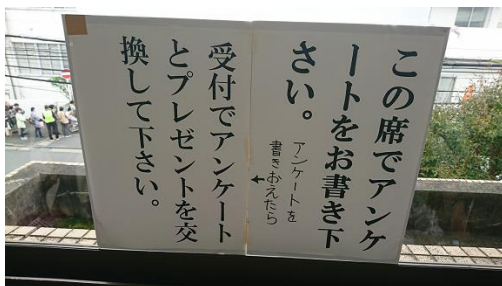 この席でアンケ
ートをお書き下
さい。
アンケートを
書きおえたら
←
受付でアンケート
とプレゼントを交
換して下さい。